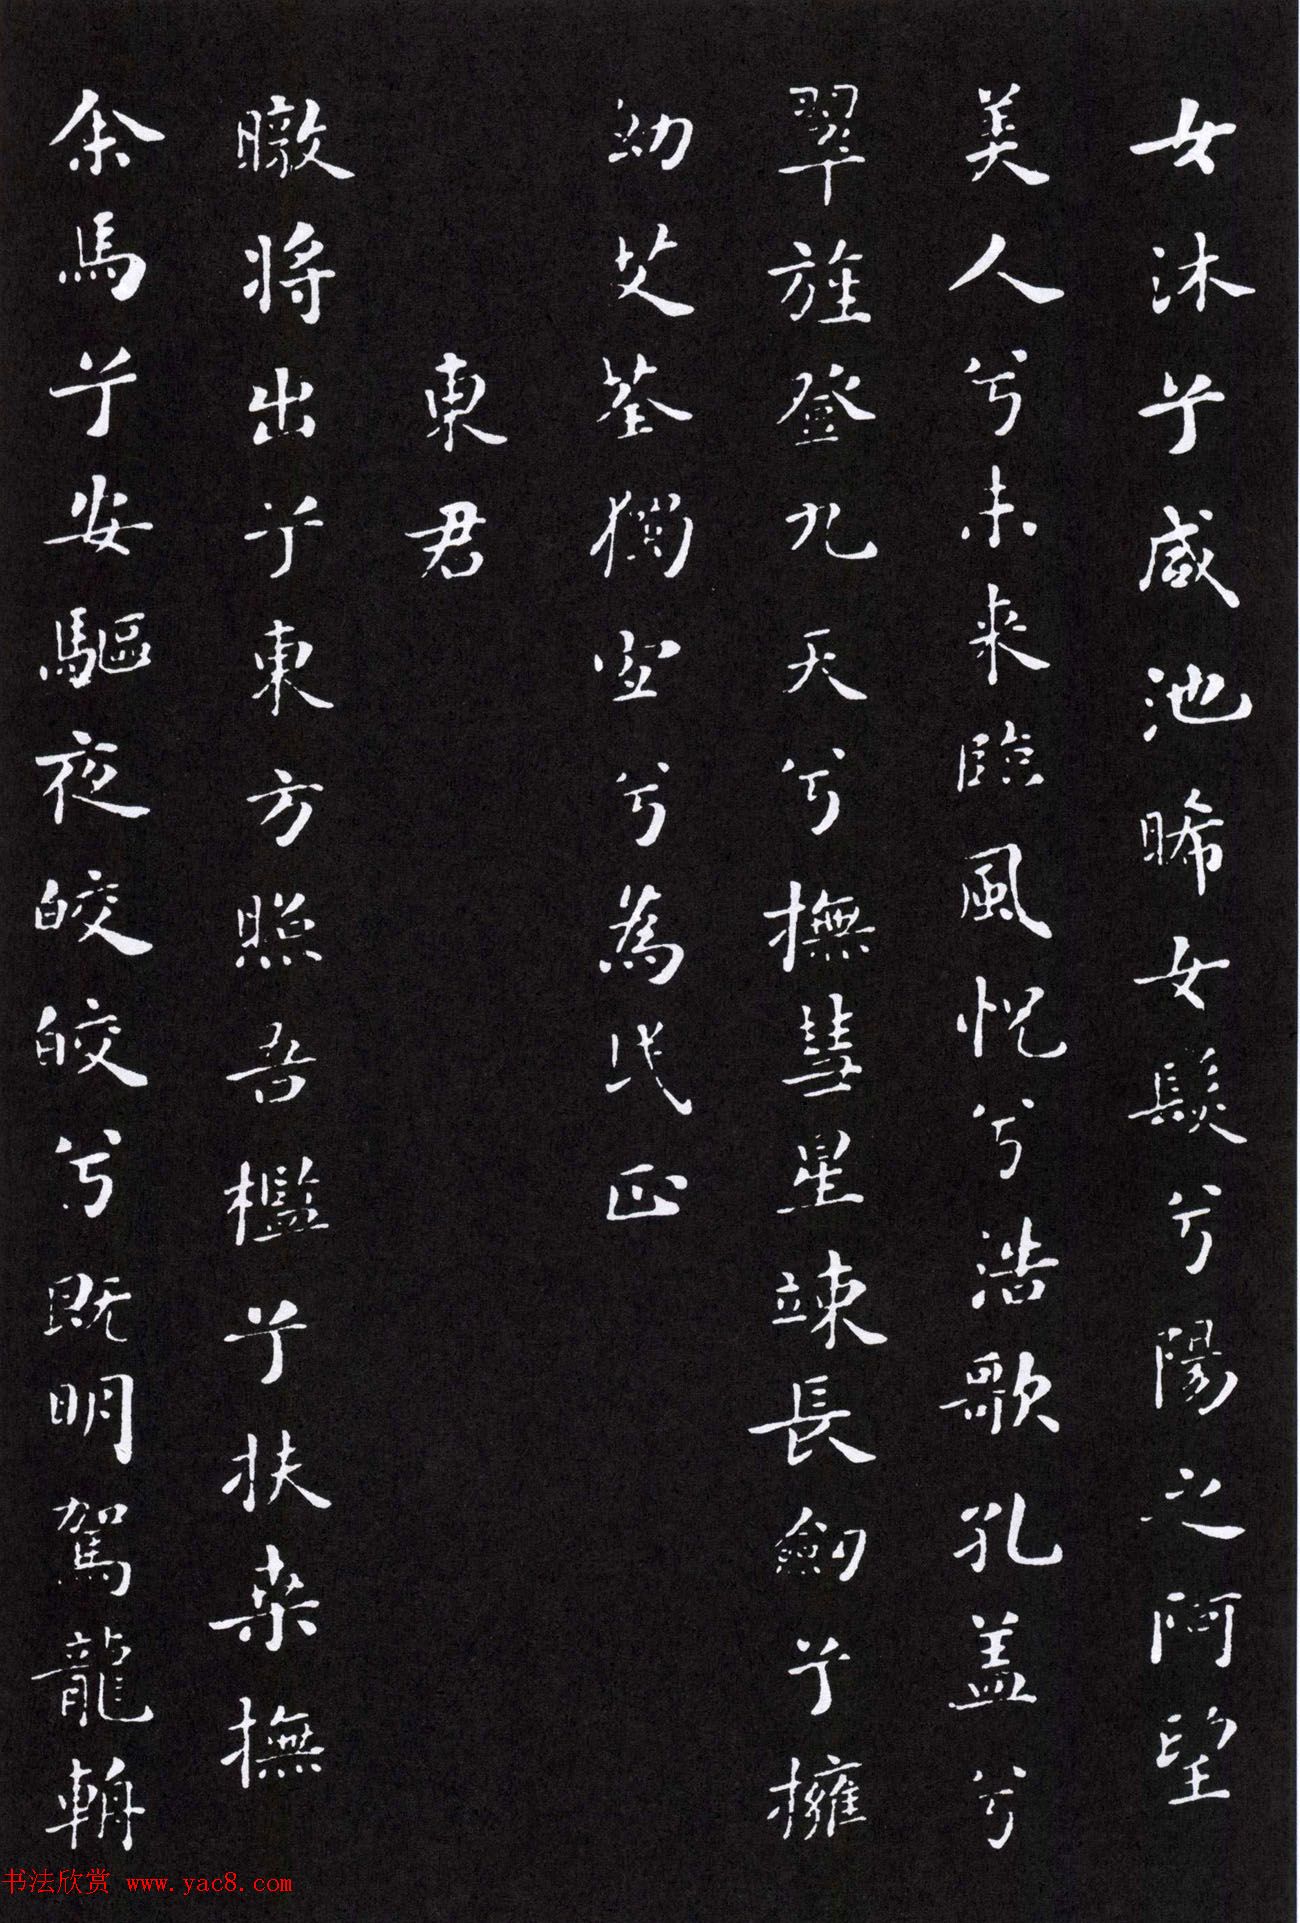 女沐兮咸池晞女髮兮陽之阿望
美人兮未來臨風怳兮浩歌孔盖兮
翠旌登九天兮撫彗星竦長劍兮擁
幼艾荃獨宜兮為民正
東君
暾將出兮東方照吾檻兮扶桑撫
余馬兮安驅夜皎皎兮既明駕龍輈
书法欣赏 www.yac8.com